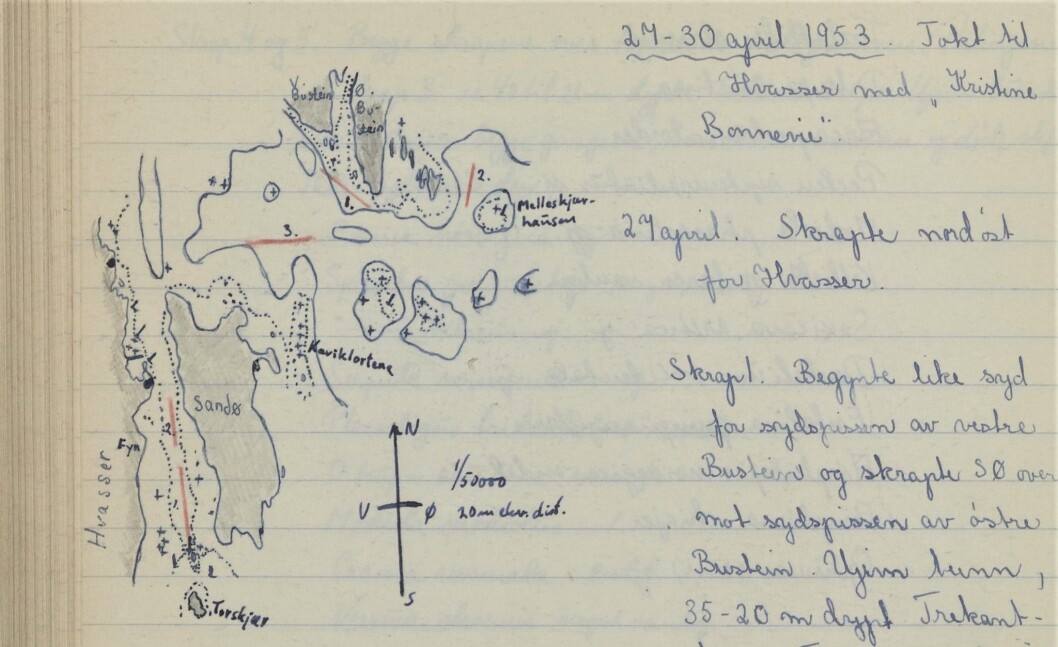 27-30 april 1953. Tokt til
Hvasser med „Kristine
Bonnevie"
27 april. Skrapte nordöst
for Hvasser.
Skrap 1. Begynte like syd
for sydspissen av vestre
Bustein og skrapte SØ over
mot sydspissen av östre
Bustein. Ujevn bunn,
35-20 m dypt Trekant-
V.
Bustein
Ø.
Bu-
stein
1.
2.
Melleskjær-
hausen
3.
Kaviklortene
Sandø
Fyn
Hvasser
2.
1.
1
2
Torskjær
N
V
Ø
S
1/50000
20 m ekv. dist.